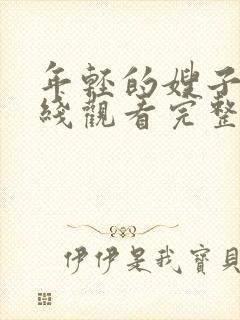 年轻的嫂子
线觀看完整
伊伊是我寶貝